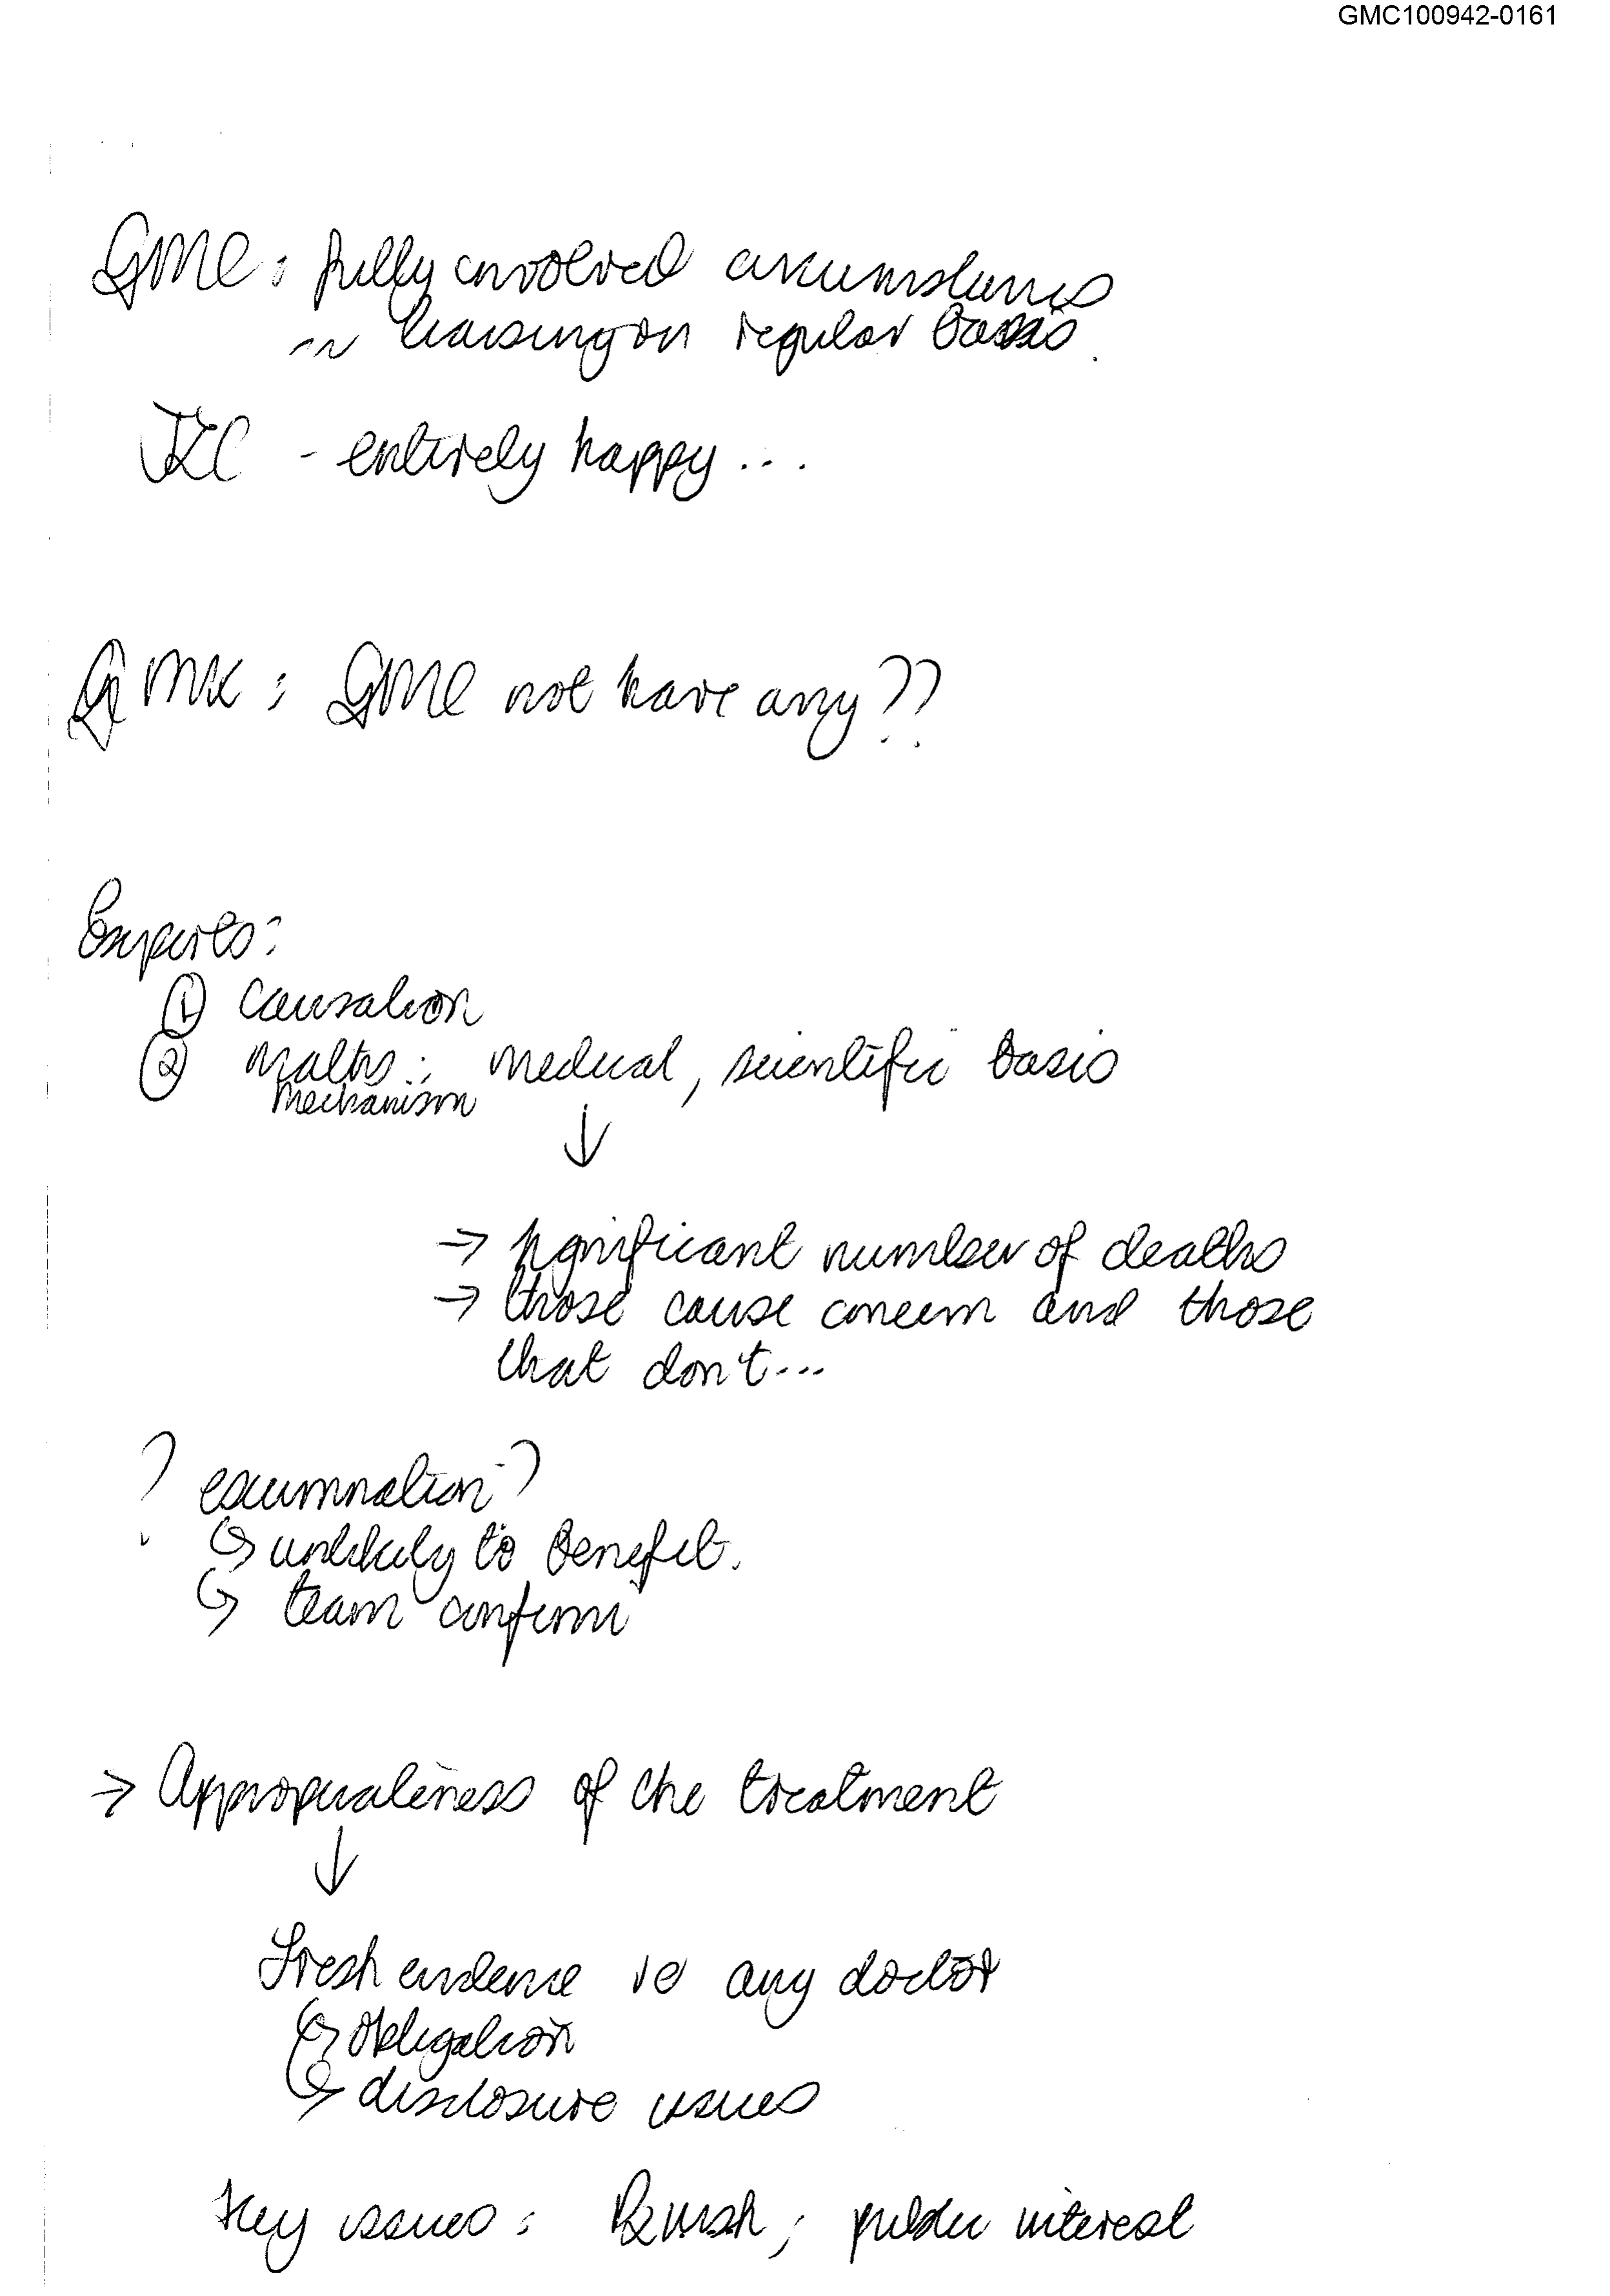 GMC100942-0161
GMC : fully involved circumstances
liaising on regular basis.
JZC - entirely happy...
GMC not have any??
Experts:
① Causation
② Maths : medical, scientific basis
Mechanism
↓
→ significant number of deaths
→ those cause concern and those
that don't...
? exumnation ?
↳ unlikely to benefit.
↳ team confirm
→ Appropriateness of the treatment
↓
Fresh evidence re any doctor
↳ obligation
↳ disclosure issues
Key issues : public interest